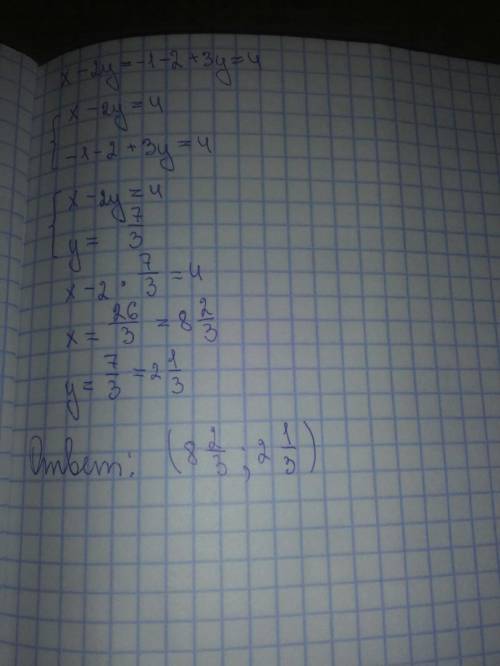 x - 2y = -1 - 2 + 3y = 4
{ x - 2y = 4
-1 - 2 + 3y = 4
{ x - 2y = 4
y = 7/3
x - 2 · 7/3 = 4
x = 26/3 = 8 2/3
y = 7/3 = 2 1/3
Ответ: (8 2/3 ; 2 1/3)